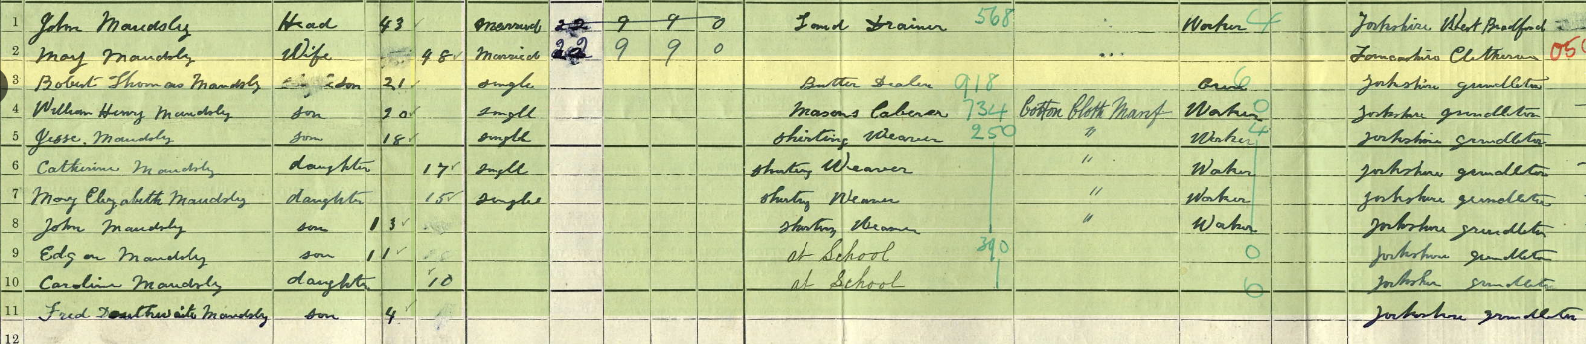 1 John Maudsley Head 43 Married 22 9 9 0 Land Drainer 568 Worker 4 Yorkshire West Bradford
2 Mary Maudsley Wife 48 Married 22 9 9 0 Lancashire Clitheroe 050
3 Robert Thomas Maudsley son 21 single Butter Dealer 918 own 6 Yorkshire grindleton
4 William Henry Maudsley son 20 single Masons Laberer 734 Cotton Cloth Manf Worker 0 Yorkshire grindleton
5 Jesse Maudsley son 18 single shirting Weaver 250 " Worker 4 Yorkshire grindleton
6 Catherine Maudsley daughter 17 single shirting Weaver " Worker Yorkshire grindleton
7 Mary Elizabeth Maudsley daughter 15 single shirting Weaver " Worker Yorkshire grindleton
8 John Maudsley son 13 shirting Weaver " Worker Yorkshire grindleton
9 Edgar Maudsley son 11 at School 390 0 Yorkshire grindleton
10 Caroline Maudsley daughter 10 at School 6 Yorkshire grindleton
11 Fred Douthwaite Maudsley son 4 Yorkshire grindleton
12